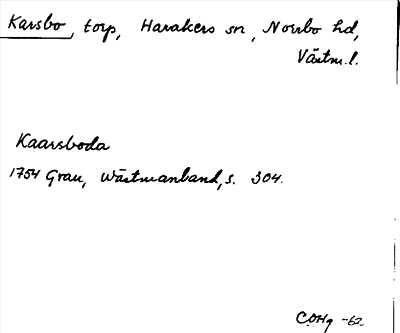 Karsbo, torp, Harakers sn, Norrbo hd,
Västm.l.
Kaarsboda
1754 Grau, Wästmanland, s. 304.
COHg -62